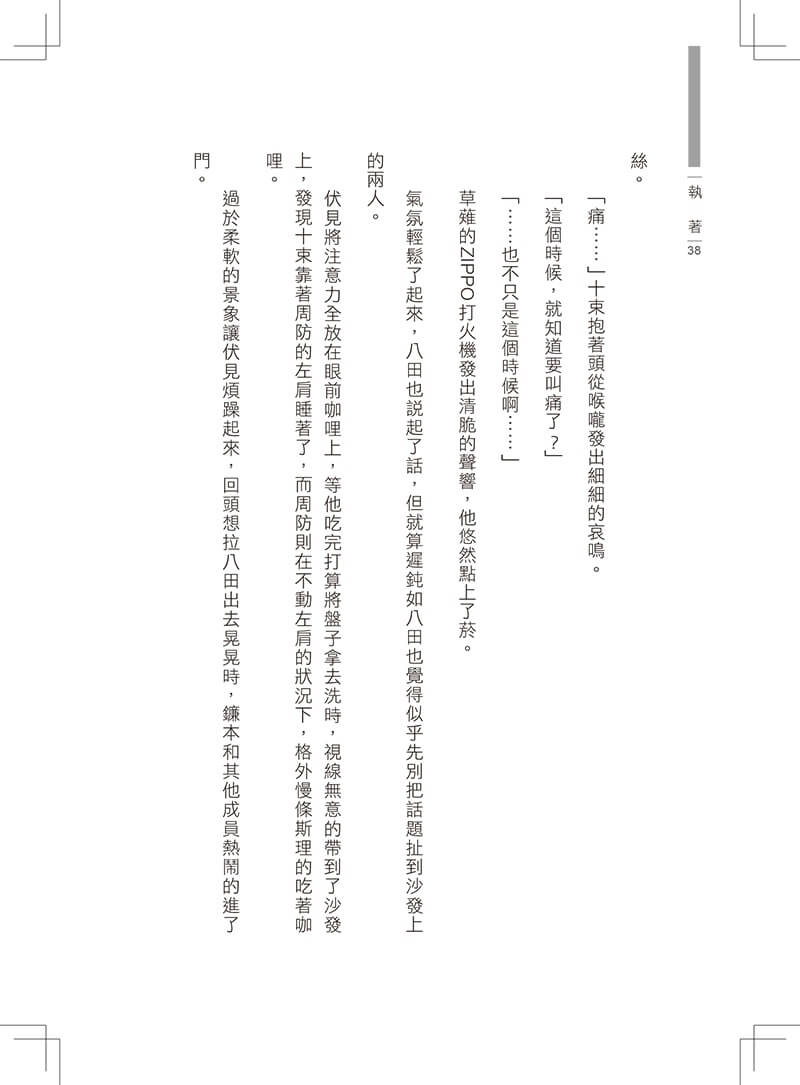 執著
38
絲。
「痛⋯⋯」十束抱著頭從喉嚨發出細細的哀鳴。
「這個時候，就知道要叫痛了？」
「⋯⋯也不只是這個時候啊⋯⋯」
草薙的ZIPPO打火機發出清脆的聲響，他悠然點上了菸。
氣氛輕鬆了起來，八田也說起了話，但就算遲鈍如八田也覺得似乎先別把話題扯到沙發上
的兩人。
伏見將注意力全放在眼前咖哩上，等他吃完打算將盤子拿去洗時，視線無意的帶到了沙發
上，發現十束靠著周防的左肩睡著了，而周防則在不動左肩的狀況下，格外慢條斯理的吃著咖
哩。
過於柔軟的景象讓伏見煩躁起來，回頭想拉八田出去晃晃時，鐮本和其他成員熱鬧的進了
門。